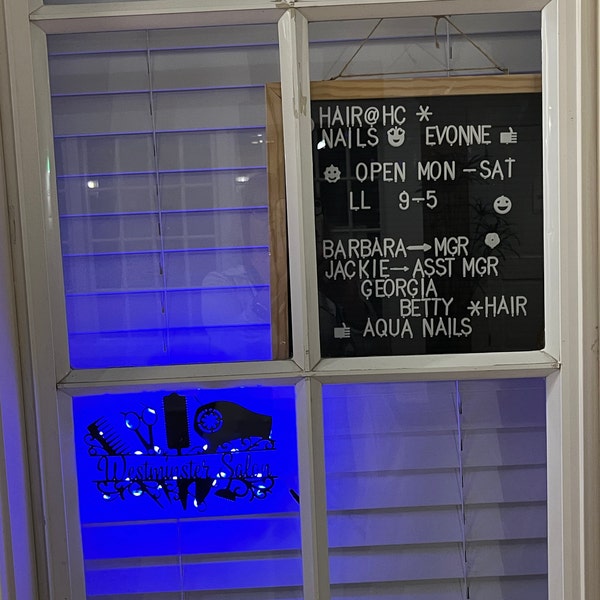 HAIR@HC *
NAILS EVONNE
OPEN MON-SAT
LL 9-5
BARBARA→MGR
JACKIE→ASST MGR
GEORGIA
BETTY *HAIR
AQUA NAILS
Westminster Salon